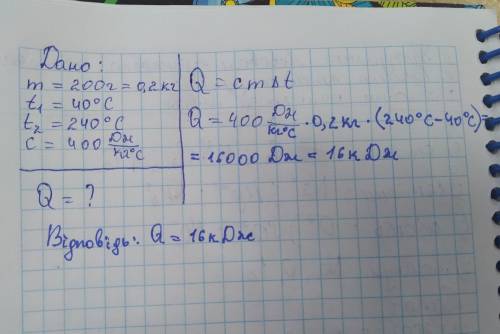 Дано:
m = 200г = 0,2 кг
t₁ = 40°C
t₂ = 240°C
c = 400 Дж/кг°C
Q = ?
Q = c m Δt
Q = 400 Дж/кг°C · 0,2 кг · (240°C - 40°C) =
= 16000 Дж = 16 кДж
Відповідь: Q = 16 кДж